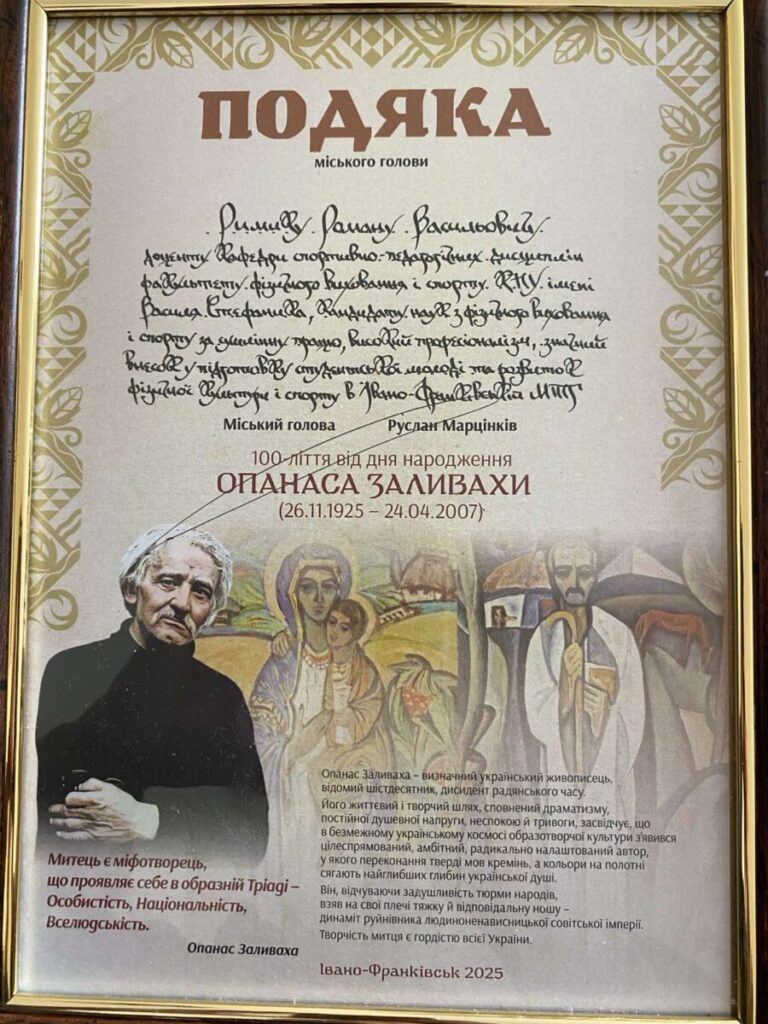 ПОДЯКА
міського голови
Римику Роману Васильовичу
доценту кафедри спортивно-педагогічних дисциплін
факультету фізичного виховання і спорту КНУ імені
Василя Стефаника, кандидату наук з фізичного виховання
і спорту за сумлінну працю, високий професіоналізм, значний
внесок у підготовку студентської молоді та розвиток
фізичної культури і спорту в Івано-Франківській МТГ
Міський голова Руслан Марцінків
100-ліття від дня народження
ОПАНАСА ЗАЛИВАХИ
(26.11.1925 – 24.04.2007)
Опанас Заливаха – визначний український живописець,
відомий шістдесятник, дисидент радянського часу.
Його життєвий і творчий шлях, сповнений драматизму,
постійної душевної напруги, неспокою й тривоги, засвідчує, що
в безмежному українському космосі образотворчої культури з'явився
цілеспрямований, амбітний, радикально налаштований автор,
у якого переконання тверді мов кремінь, а кольори на полотні
сягають найглибших глибин української душі.
Він, відчуваючи задушливість тюрми народів,
взяв на свої плечі тяжку й відповідальну ношу –
динаміт руйнівника людиноненависницької совітської імперії.
Творчість митця є гордістю всієї України.
Митець є міфотворець,
що проявляє себе в образній Тріаді –
Особистість, Національність,
Вселюдськість.
Опанас Заливаха
Івано-Франківськ 2025